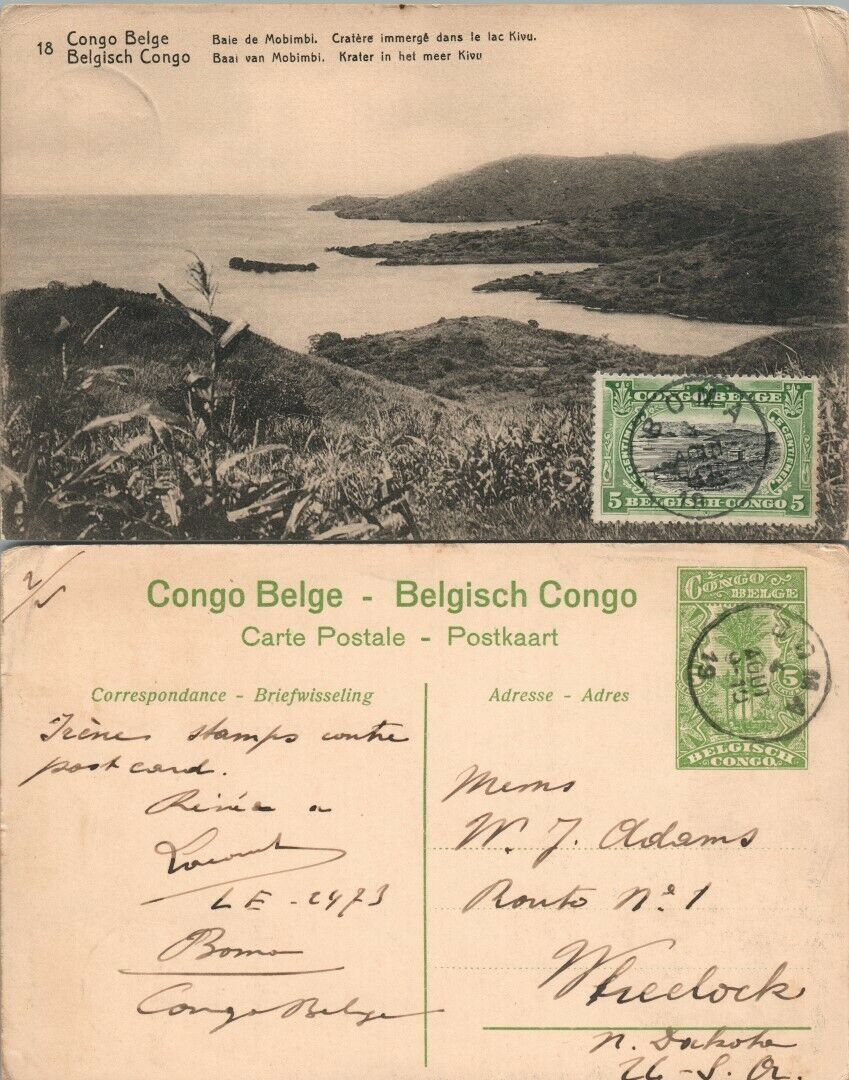 18 Congo Belge Baie de Mobimbi. Cratère immergé dans le lac Kivu.
Belgisch Congo Baai van Mobimbi. Krater in het meer Kivu
CONGO BELGE
5 CENTIMES
BOMA
5 BELGISCH-CONGO 5
2/5
Congo Belge - Belgisch Congo
Carte Postale - Postkaart
CONGO BELGE
5
BELGISCH CONGO
BOMA
AOUT
19
Correspondance - Briefwisseling
Adresse - Adres
stamps contre
post card.
LE - 2473
Boma
Congo Belge
W. J. Adams
Route No. 1
Wheelock
N. Dakota
U-S.